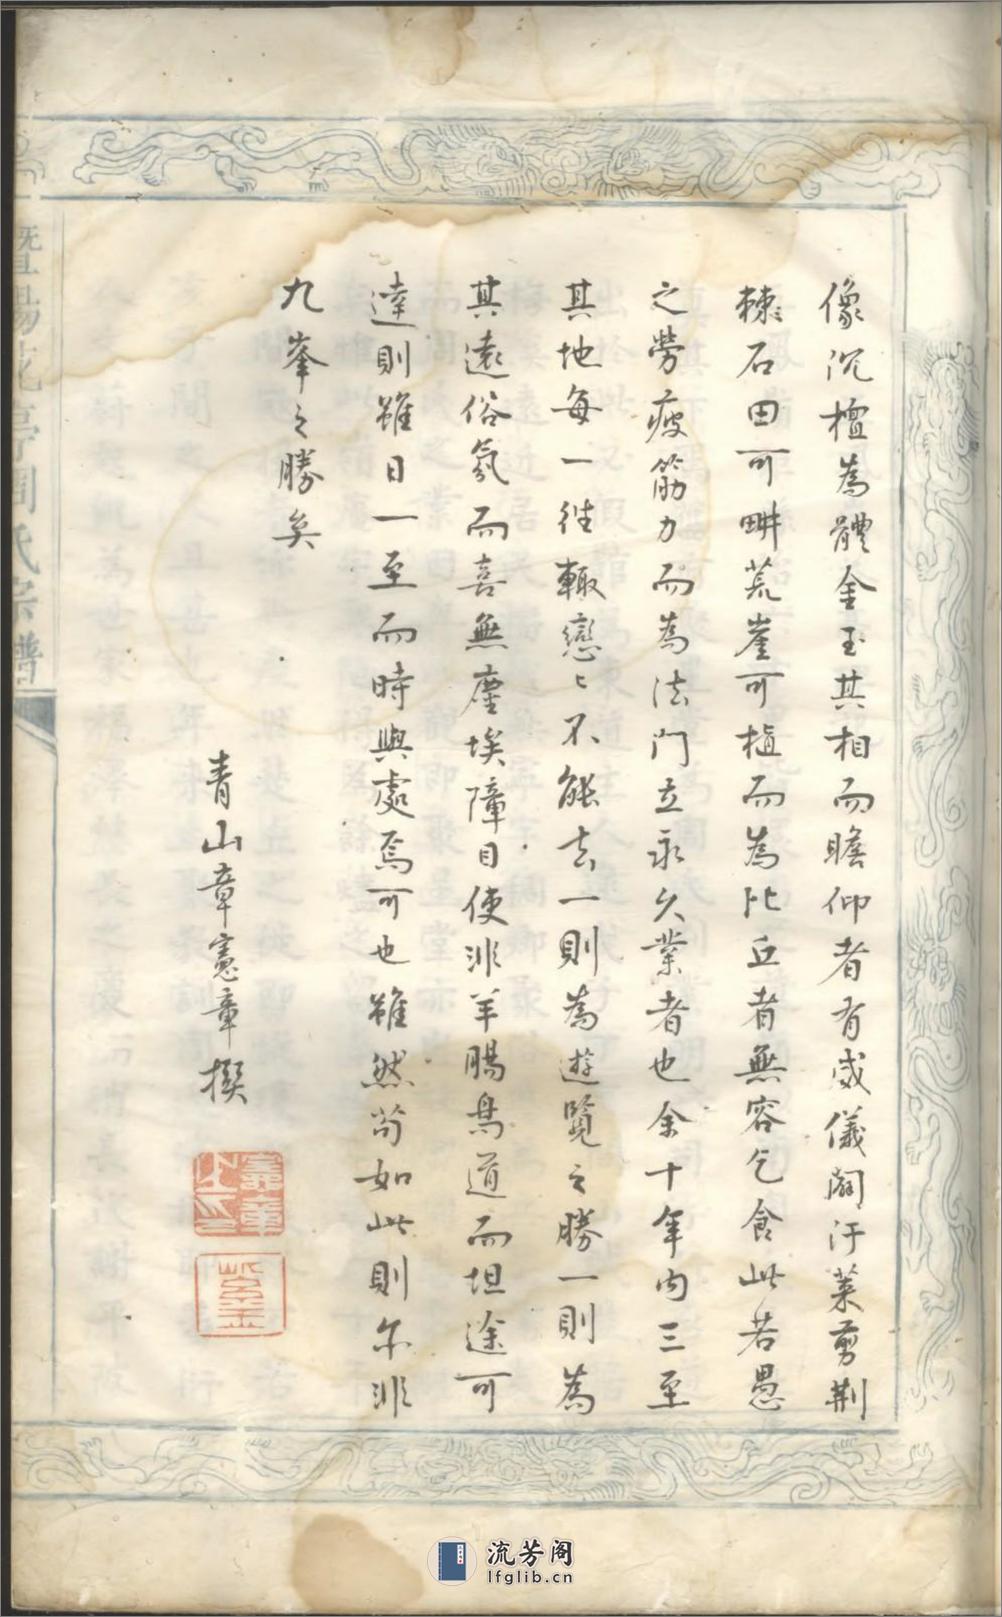 像沉檀為體金玉其相而瞻仰者有威儀闢汙萊剪荆
棘石田可畊荒崖可植而為比丘者無容乞食此若愚
之勞疲筋力而為法門立永久業者也余十年内三至
其地每一徃輙戀〻不能去一則為遊覽之勝一則為
其遠俗氛而喜無塵埃障目使非羊腸鳥道而坦途可
達則雖日一至而時與處焉可也雖然苟如此則亦非
九峯之勝矣
青山章憲章撰
暨陽花亭周氏宗譜
流芳阁
lfglib.cn